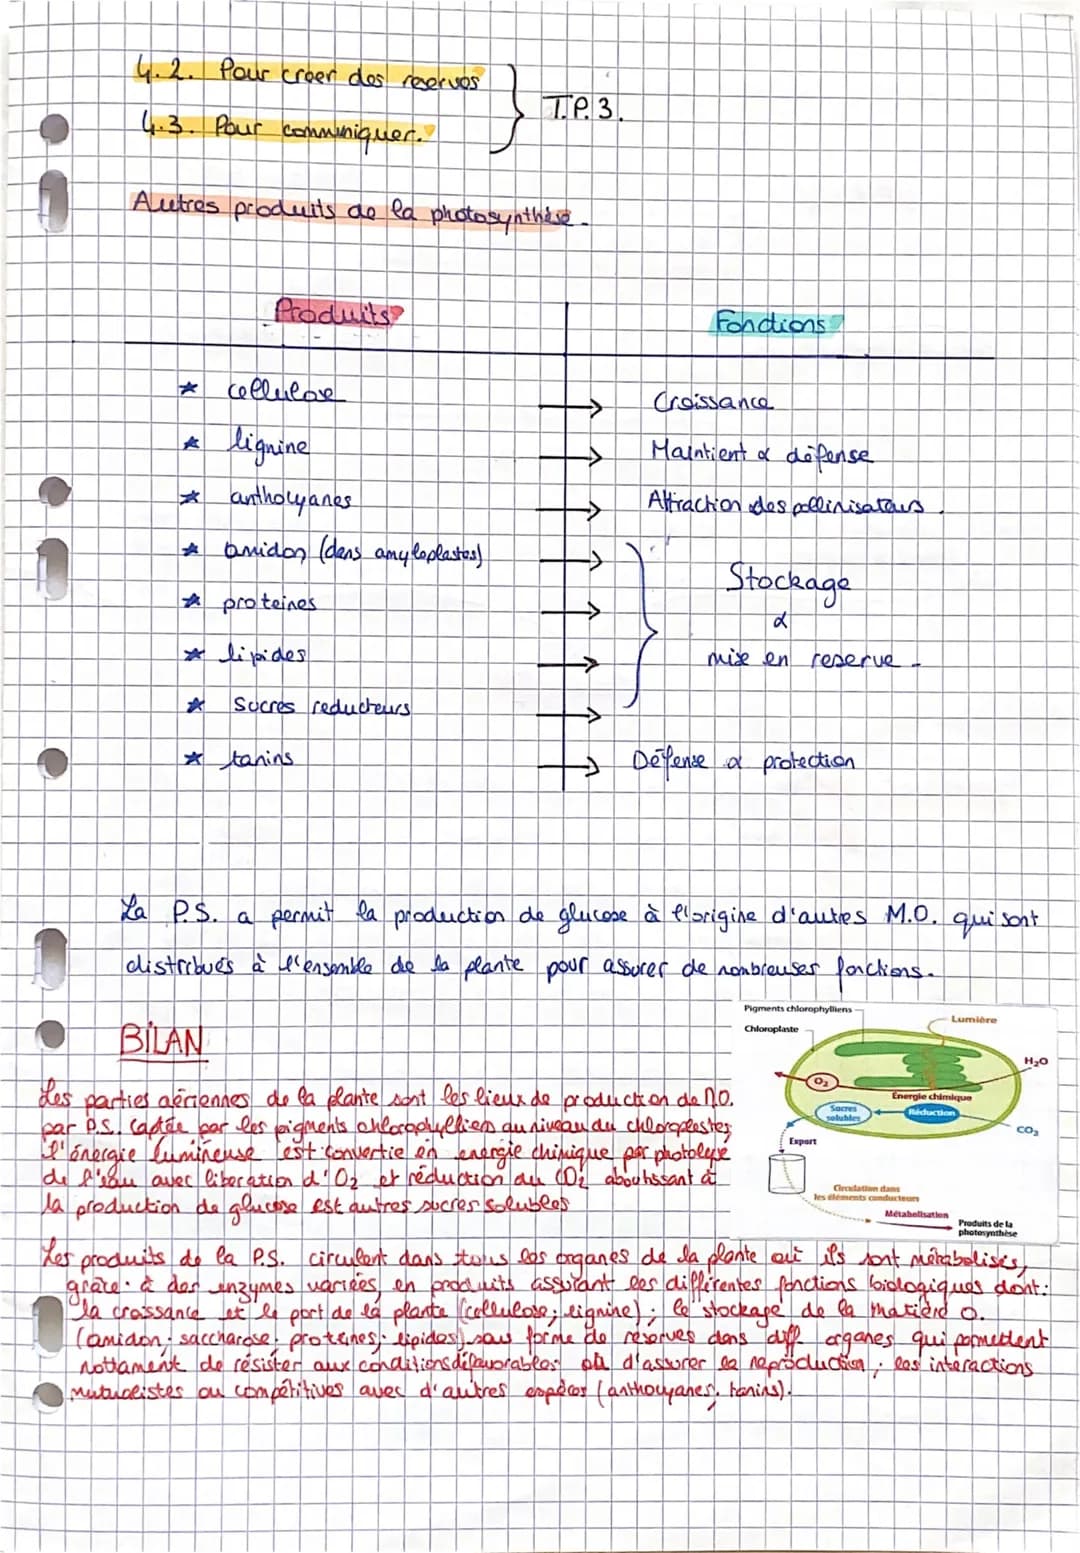 4.2. Pour creer des reserves
4.3. Pour communiquer.
T.P. 3.
Autres produits de la photosynthèse.
Produits
Fonctions
* cellulose → Croissance
* lignine → Maintient & défense
* anthocyanes → Attraction des pollinisateurs.
* amidon (dans amyloplastes) →
* proteines →
* lipides →
* Sucres reducteurs →
Stockage
&
mise en reserve.
* tanins → Défense & protection
La P.S. a permit la production de glucose à l'origine d'autres M.O. qui sont
distribués à l'ensemble de la plante pour assurer de nombreuses fonctions.
BILAN
Les parties aériennes de la plante sont les lieux de production de M.O.
par P.S. Captée par les pigments chlorophylliens au niveau du chloroplastes,
l'énergie lumineuse est convertie en énergie chimique par photolyse
de l'eau avec liberation d'O2 et réduction du CO2 aboutissant à
la production de glucose est autres sucres solubles
Pigments chlorophylliens
Chloroplaste
Lumière
H2O
O2
Energie chimique
Sucres
solubles
Réduction
CO2
Export
Circulation dans
les éléments conducteurs
Métabolisation
Produits de la
photosynthèse
Les produits de la P.S. circulent dans tous les organes de la plante où ils sont métabolisés,
grâce à des enzymes variées, en produits assurant les différentes fonctions biologiques dont:
la croissance et le port de la plante (cellulose; lignine); le stockage de la matière O.
(amidon; saccharose; proteines; lipides) sous forme de réserves dans diff organes qui permettent
nottament de résister aux conditions défavorables où d'assurer la reproduction; les interactions
mutualistes ou compétitives avec d'autres espèces (anthocyanes, tanins).